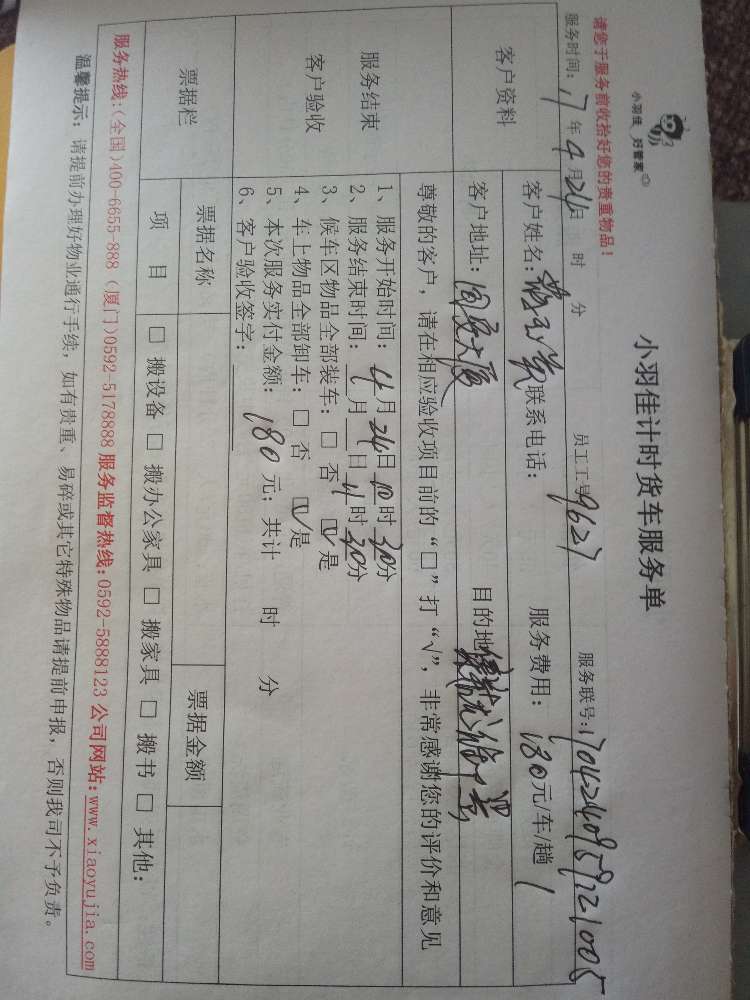 小羽佳 好管家
小羽佳计时货车服务单
请您于服务前收拾好您的贵重物品！
服务时间：17年4月24日 时 分 员工工号9627 服务联号：1704240959121005
客户资料 客户姓名： 联系电话： 服务费用：180元/车/趟 1
客户地址：国贸大厦 目的地
尊敬的客户，请在相应验收项目前的“□”打“√”，非常感谢您的评价和意见
服务结束
客户验收
1、服务开始时间：4月24日10时30分
2、服务结束时间：4月 日11时30分
3、候车区物品全部装车：□ 否 ☑ 是
4、车上物品全部卸车：□ 否 ☑ 是
5、本次服务实付金额：180元；共计 时 分
6、客户验收签字：
票据栏 票据名称 票据金额
项 目 □ 搬设备 □ 搬办公家具 □ 搬家具 □ 搬书 □ 其他：
服务热线：(全国)400-6655-888 (厦门)0592-5178888 服务监督热线：0592-5888123 公司网站：www.xiaoyujia.com
温馨提示：请提前办理好物业通行手续，如有贵重、易碎或其它特殊物品请提前申报，否则我司不予负责。